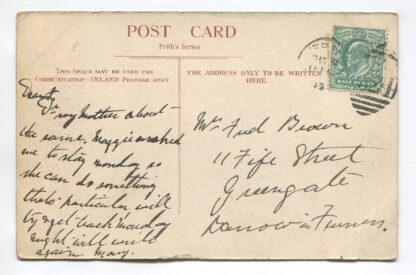 POST CARD
Frith's Series
THIS SPACE MAY BE USED FOR
COMMUNICATION - INLAND POSTAGE ONLY
THE ADDRESS ONLY TO BE WRITTEN
HERE.
HALF PENNY
my mother about
the same, Maggie asked
me to stay monday so
she can do something
thats particular will
try & get back monday
night will write
again. May.
Mr Fred Brown
11 Fife Street
Greengate
Barrow in Furness